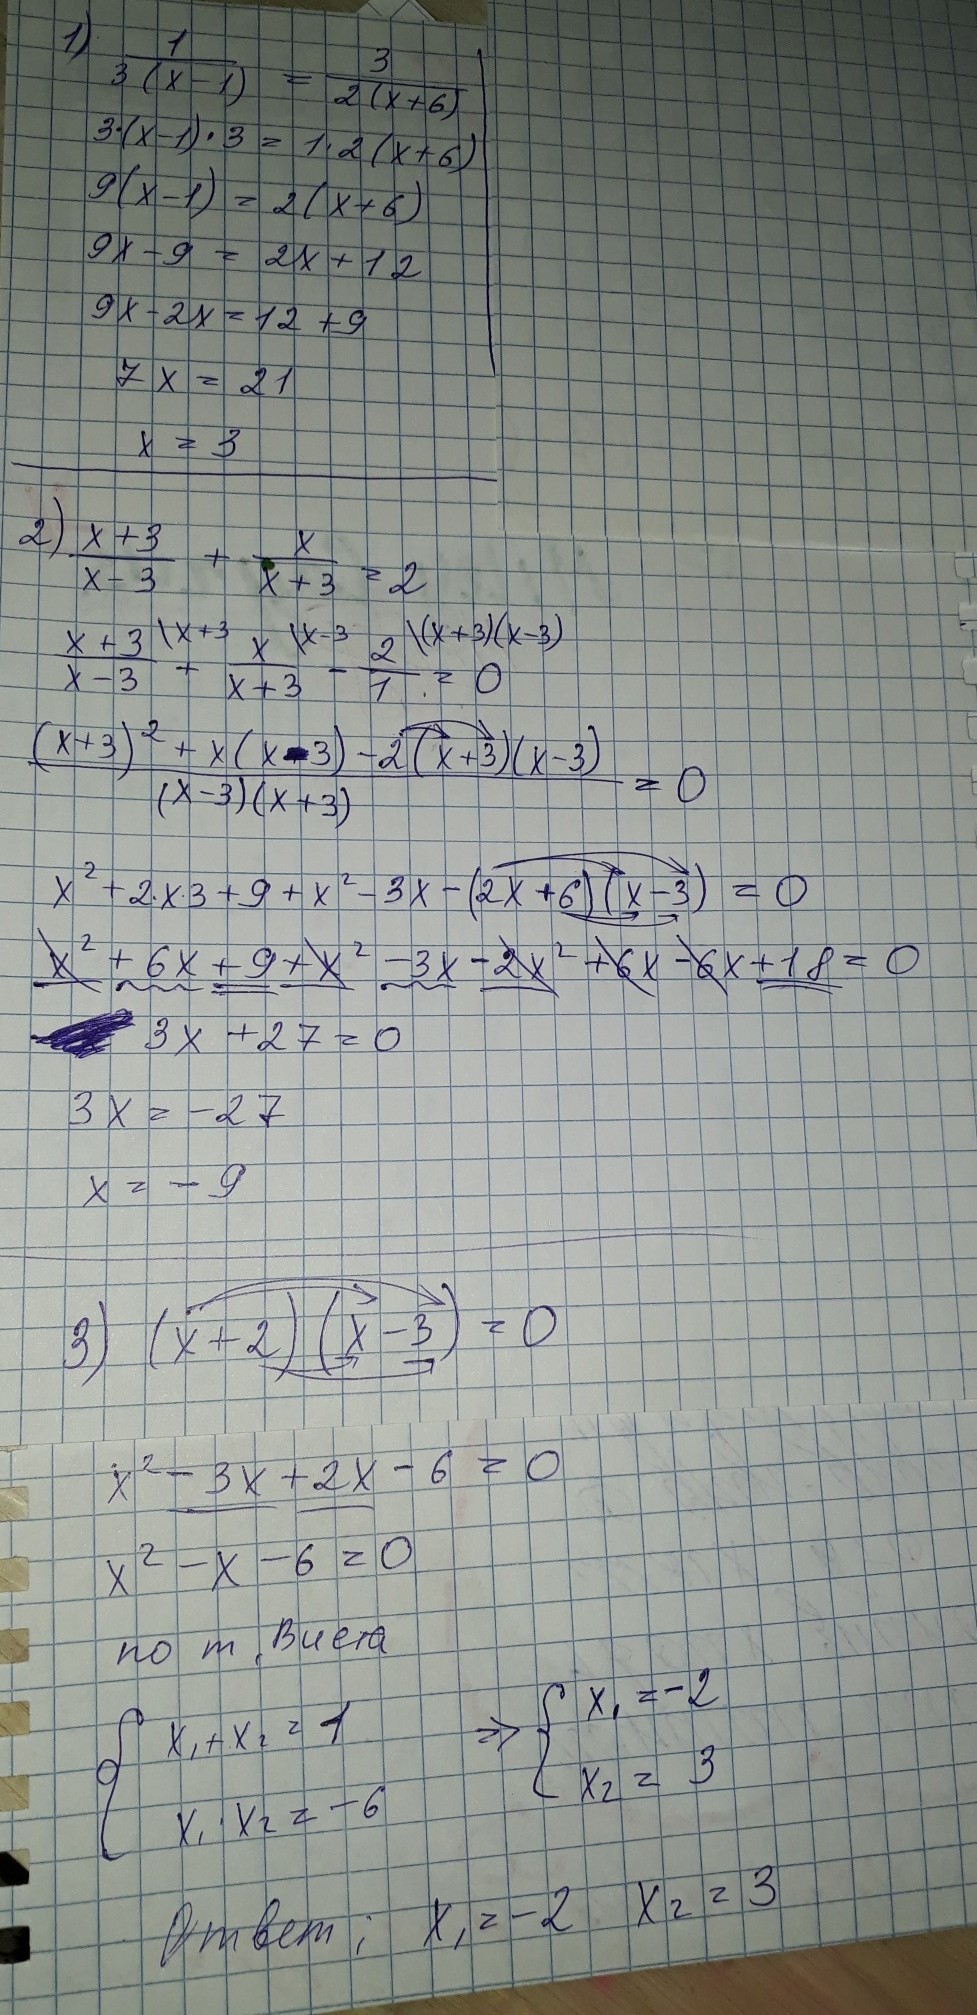 1) 1/(3(x-1)) = 3/(2(x+6))
3·(x-1)·3 = 1·2(x+6)
9(x-1) = 2(x+6)
9x-9 = 2x+12
9x-2x=12+9
7x = 21
x = 3
2) (x+3)/(x-3) + x/(x+3) = 2
(x+3)/(x-3) \x+3 + x/(x+3) \x-3 - 2/1 \(x+3)(x-3) = 0
((x+3)² + x(x-3) - 2(x+3)(x-3))/((x-3)(x+3)) = 0
x²+2·x·3+9+x²-3x-(2x+6)(x-3) = 0
x² + 6x + 9 + x² - 3x - 2x² + 6x - 6x + 18 = 0
3x + 27 = 0
3x = -27
x = -9
3) (x+2)(x-3) = 0
x² - 3x + 2x - 6 = 0
x² - x - 6 = 0
по т. Виета
{ x₁+x₂ = 1 => { x₁ = -2
x₁·x₂ = -6 x₂ = 3
Ответ: x₁ = -2 x₂ = 3